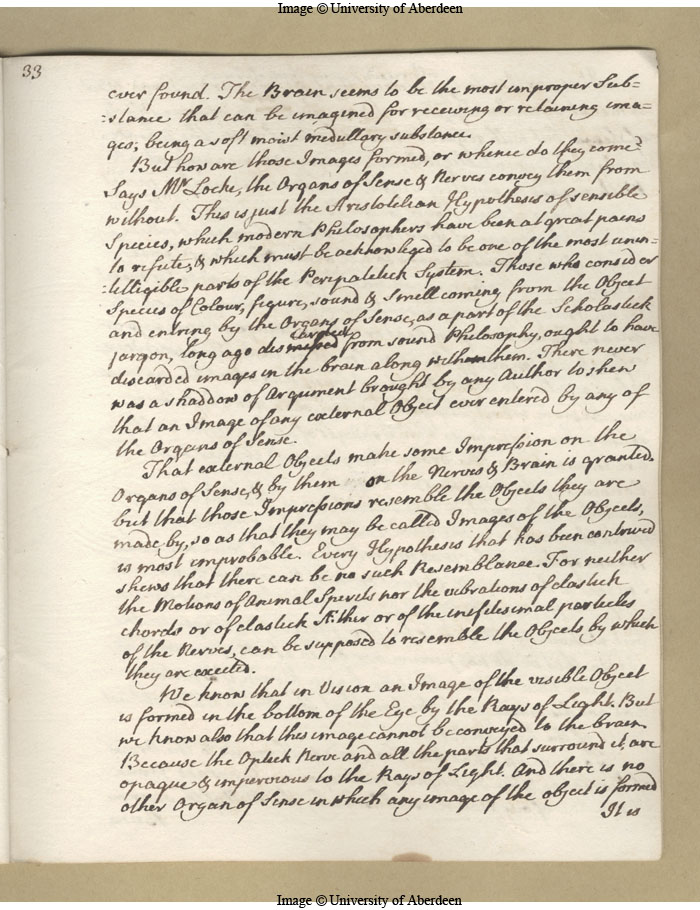 Image © University of Aberdeen
33
ever found. The Brain seems to be the most improper Sub=
=stance that can be imagined for receiving or retaining ima=
ges, being a soft moist medullary substance.
But how are those Images formed, or whence do they come?
Says Mr Locke, the Organs of Sense & Nerves convey them from
without. This is just the Aristotelian Hypothesis of sensible
Species, which modern Philosophers have been at great pains
to refute, & which must be acknowledged to be one of the most unin=
=telligible parts of the Peripatetick System. Those who consider
Species of Colour, figure, sound & Smell coming from the Object
and entring by the Organs of Sense, as a part of the Scholastick
jargon, long ago discarded from sound Philosophy, ought to have
discarded images in the brain along with them. There never
was a shaddow of Argument brought by any Author to shew
that an Image of any external Object ever entered by any of
the Organs of Sense.
That external Objects make some Impression on the
Organs of Sense, & by them on the Nerves & Brain is granted.
but that those Impressions resemble the Objects they are
made by, so as that they may be called Images of the Objects,
is most improbable. Every Hypothesis that has been contrived
shews that there can be no such Resemblance. For neither
the Motions of Animal Spirits nor the vibrations of elastick
chords or of elastick Æther or of the infitesimal particles
of the Nerves, can be supposed to resemble the Objects by which
they are excited.
We know that in Vision an Image of the visible Object
is formed in the bottom of the Eye by the Rays of Light. But
we know also that this image cannot be conveyed to the brain
Because the Optick Nerve and all the parts that surround it, are
opaque & impervious to the Rays of Light. And there is no
other Organ of Sense in which any image of the object is formed
It is
Image © University of Aberdeen